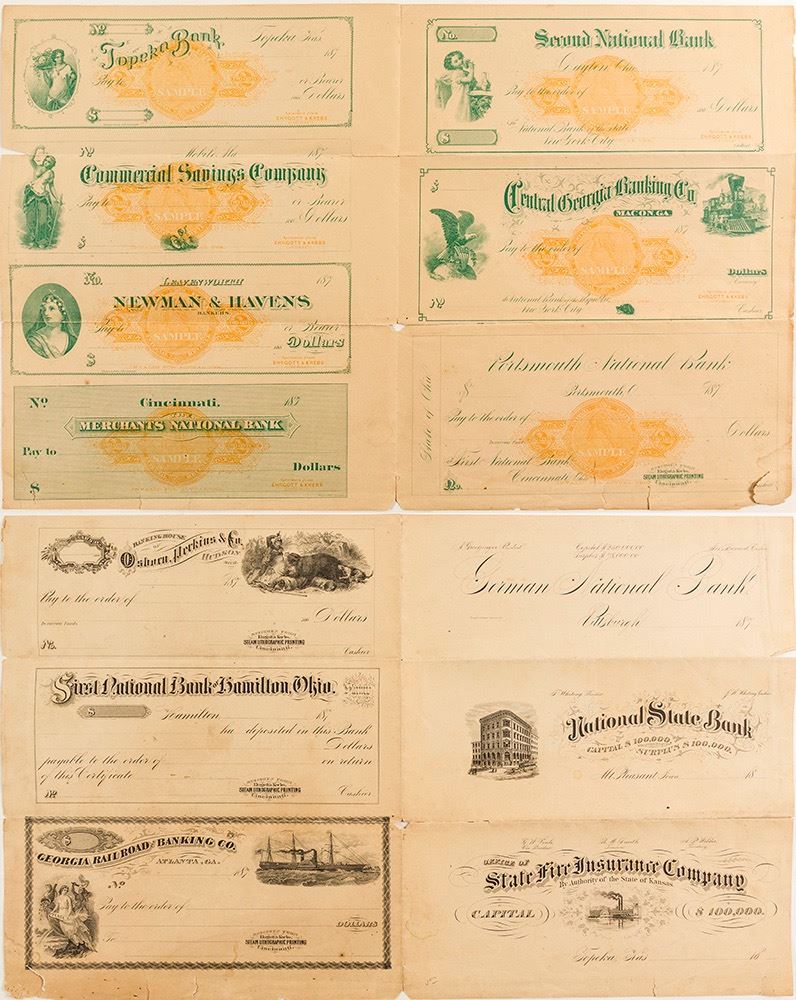 No
Topeka Bank.
Topeka Kas. 187
Pay to or Bearer
Dollars
SAMPLE
$
EHRGOTT & KREBS
No.
Second National Bank
Dayton Ohio 187
Pay to the order of
SAMPLE
Dollars
$
National Bank of the State
New York City
EHRGOTT & KREBS
No
Mobile, Ala. 187
Commercial Savings Company
Pay to or Bearer
SAMPLE
Dollars
$
EHRGOTT & KREBS
$
Central Georgia Banking Co
MACON, GA.
187
Pay to the order of
SAMPLE
Dollars
No
National Bank of the Republic
New York City
EHRGOTT & KREBS
Cashier
No.
LEAVENWORTH 187
NEWMAN & HAVENS
BANKERS
Pay to or Bearer
SAMPLE
Dollars
$
EHRGOTT & KREBS
State of Ohio
Portsmouth National Bank
$ Portsmouth O. 187
Pay to the order of
Dollars
SAMPLE
First National Bank
Cincinnati, Ohio
No.
STEAM LITHOGRAPHIC PRINTING
Cincinnati.
No Cincinnati, 187
THE
MERCHANTS NATIONAL BANK
Pay to
SAMPLE
Dollars
$
EHRGOTT & KREBS
BANKING HOUSE
OF
Osborn, Perkins & Co.
HUDSON
187
Pay to the order of
Dollars
No.
STEAM LITHOGRAPHIC PRINTING
Cincinnati.
Cashier
Capital $
Surplus $
German National Bank
Pittsburgh 187
First National Bank of Hamilton, Ohio.
$ Hamilton 187
has deposited in this Bank
Dollars
payable to the order of on return
of this Certificate
No
STEAM LITHOGRAPHIC PRINTING
Cincinnati.
Cashier
National State Bank
CAPITAL $ 100,000. SURPLUS $ 100,000.
Mt Pleasant Iowa 18
GEORGIA RAIL ROAD AND BANKING CO.
ATLANTA, GA.
No 187
Pay to the order of
DOLLARS
To
STEAM LITHOGRAPHIC PRINTING
Cincinnati.
OFFICE OF
State Fire Insurance Company
By Authority of the State of Kansas.
CAPITAL $ 100,000.
Topeka Kas